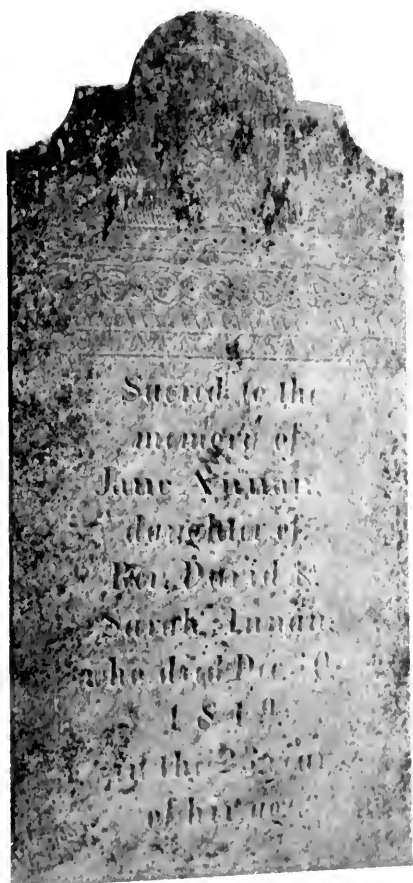 Sacred to the
memory of
Jane Annan
daughter of
Rev. David &
Sarah Annan
who died Dec.
in the year
of her age